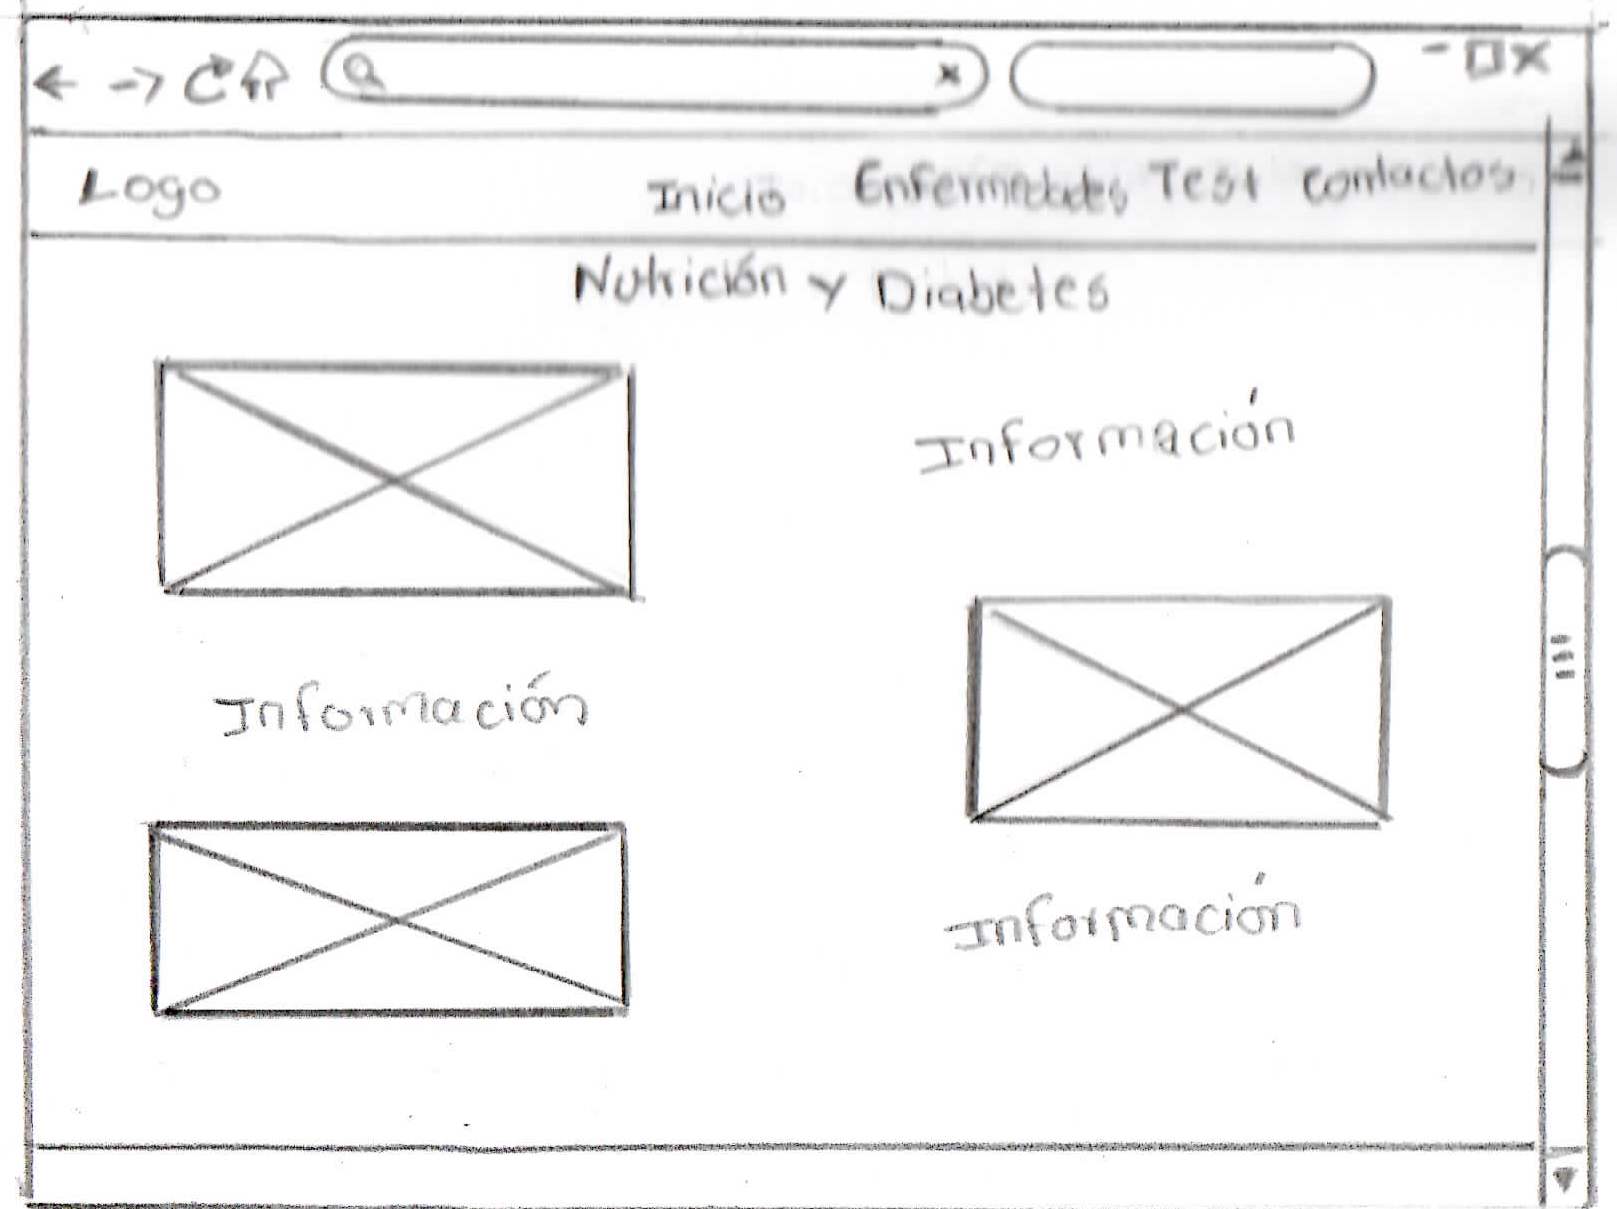 Logo Inicio Enfermedades Test contactos
Nutrición y Diabetes
Información
Información
Información